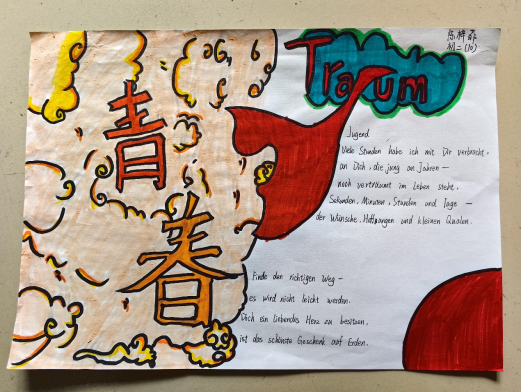 陈梓
初二(10)
Traum
青春
Jugend
Viele Stunden habe ich mit Dir verbracht,
an Dich, die jung an Jahren —
noch verträumt im Leben steht,
Sekunden, Minuten, Stunden und Tage —
der Wünsche, Hoffnungen und kleinen Qualen.
Finde den richtigen Weg —
es wird nicht leicht werden.
Dich ein liebendes Herz zu besitzen,
ist das schönste Geschenk auf Erden.